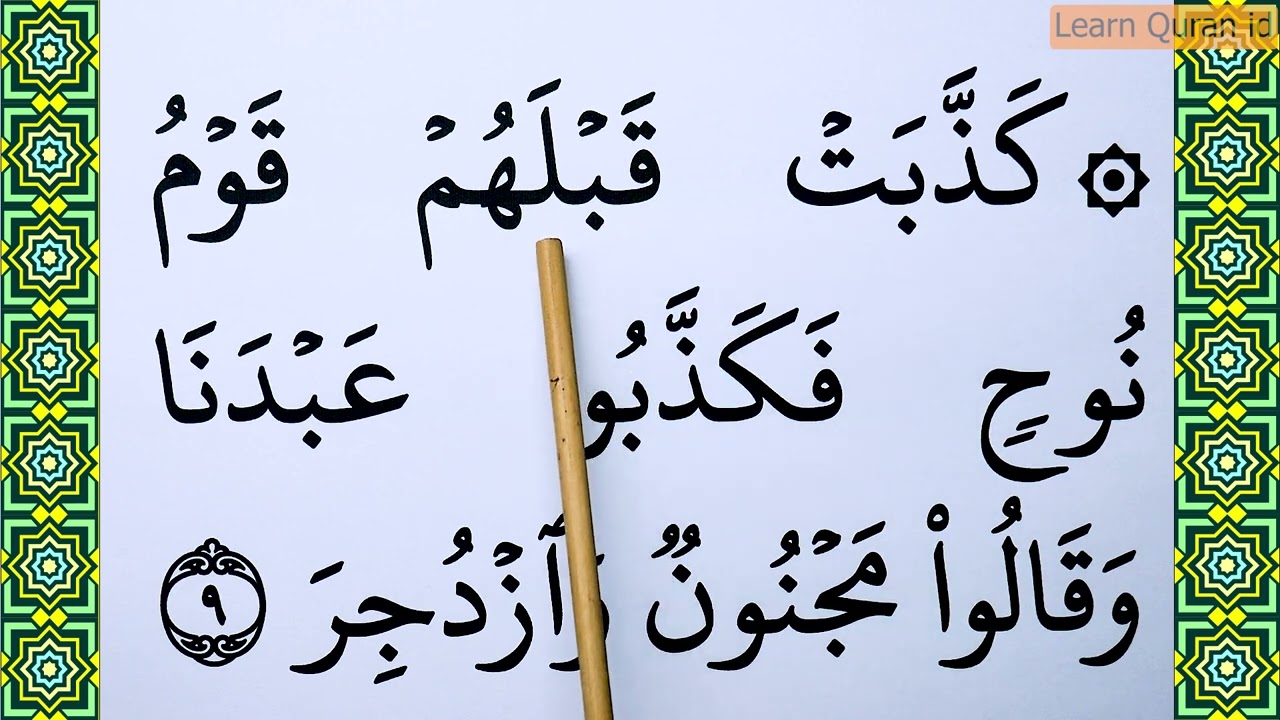 Learn Quran id
۞ كَذَّبَتۡ قَبۡلَهُمۡ قَوۡمُ
نُوحٖ فَكَذَّبُواْ عَبۡدَنَا
وَقَالُواْ مَجۡنُونٞ وَٱزۡدُجِرَ ٩